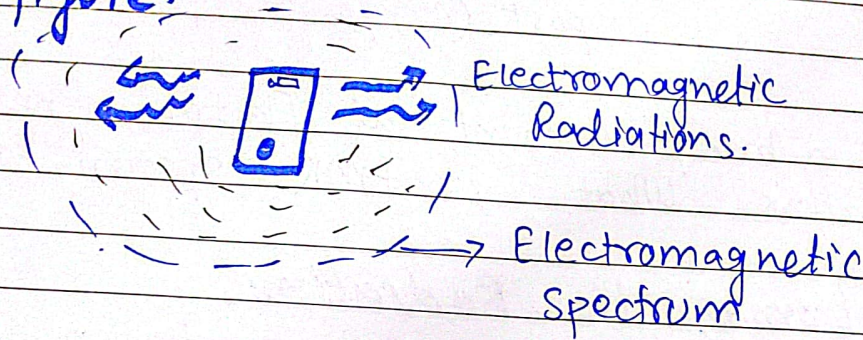 figure.
Electromagnetic
Radiations.
Electromagnetic
Spectrum